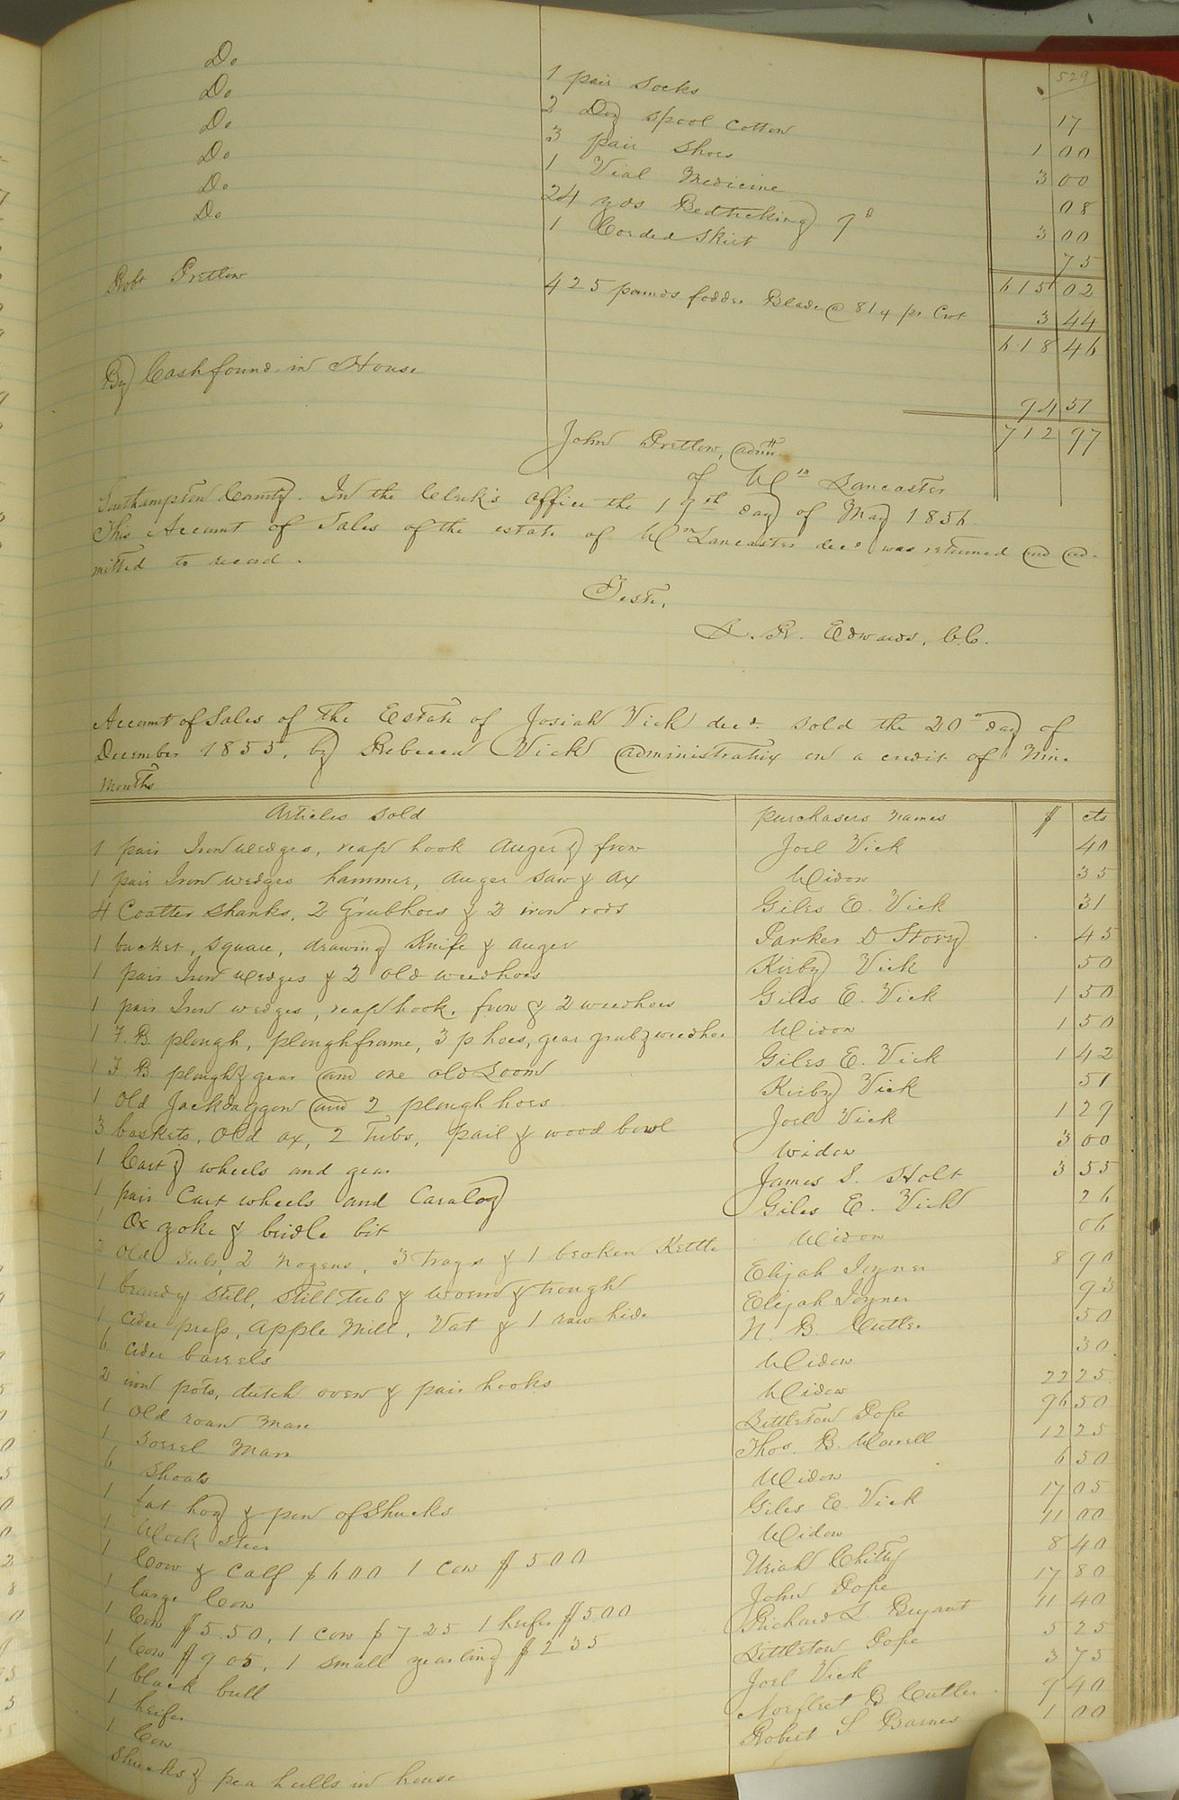 529
Do 1 pair Socks 17
Do 2 Doz spool cotton 1 00
Do 3 pair Shoes 3 00
Do 1 Vial Medicine 08
Do 24 yds Bedticking 3 00
Do 1 Corded Skirt 75
615 02
Robt Pretlow 425 pounds fodder Blade @ 81 1/4 pr Cwt 3 44
618 46
By Cash found in House 94 51
712 97
John Pretlow, admr
of Wm Lancaster
Southampton County. In the Clerk's Office the 19th day of May 1856.
This Account of Sales of the estate of Wm Lancaster decd was returned and ad-
mitted to record.
Teste,
L. R. Edwards, C.C.
Account of Sales of the Estate of Josiah Vick decd. sold the 20th day of
December 1855, by Rebecca Vick administratrix on a credit of Nine
Months
Articles Sold purchasers names $ cts
1 pair Iron wedges, reap hook Auger & frow Joel Vick 40
1 pair Iron wedges hammer, auger saw & ax Widow 35
4 Coatter Shanks, 2 Grubhoes & 2 iron rods Giles E. Vick 31
1 bucket, square, drawing Knife & auger Parker D Story 45
1 pair Iron wedges & 2 old weedhoes Kirby Vick 50
1 pair Iron wedges, reap hook, frow & 2 weedhoes Giles E. Vick 1 50
1 F. B. plough, ploughframe, 3 p hoes, gear grub & weedhoe Widow 1 50
1 F. B. plough & gear and one old Loom Giles E. Vick 1 42
1 old Jackdaggon and 2 plough hoes Kirby Vick 51
3 baskets, old ax, 2 Tubs, pail & wood bowl Joel Vick 1 29
1 Cart & wheels and gear Widow 3 00
1 pair Cart wheels and James S. Holt 3 55
1 Ox yoke & bridle bit Giles E. Vick 26
old Tubs, 2 nogens, 3 trays & 1 broken Kettle Widow 06
1 brandy Still, Still tub & worm & trough Elijah Joyner 8 90
1 cider press, Apple Mill, Vat & 1 raw hide Elijah Joyner 93
6 cider barrels N. B. Cutler 50
2 iron pots, dutch oven & pair hooks Widow 30
1 old roan Mare Widow 22 25
1 Sorrel Mare Littleton Pope 96 50
6 Shoats Thos. B. Worrell 12 25
1 fat hog & pen of Shucks Widow 6 50
1 Steer Giles E. Vick 17 05
1 Cow & Calf $6 00 1 Cow $5 00 Widow 11 00
1 large Cow Uriah Chitty 8 40
1 Cow $5.50, 1 Cow $7 25 1 heifer $5 00 John Pope 17 80
1 Cow $9 05, 1 small yearling $2 35 Richard L. Bryant 11 40
1 black bull Littleton Pope 5 25
1 heifer Joel Vick 3 75
1 Cow Norfleet B Cutler 9 40
Shucks & pea hulls in house Robert S Barnes 1 00